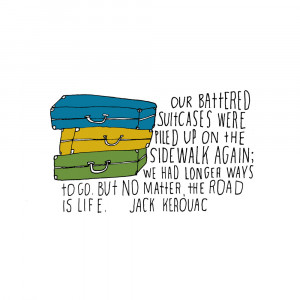 OUR BATTERED
SUITCASES WERE
PILED UP ON THE
SIDEWALK AGAIN;
WE HAD LONGER WAYS
TO GO. BUT NO MATTER, THE ROAD
IS LIFE. JACK KEROUAC